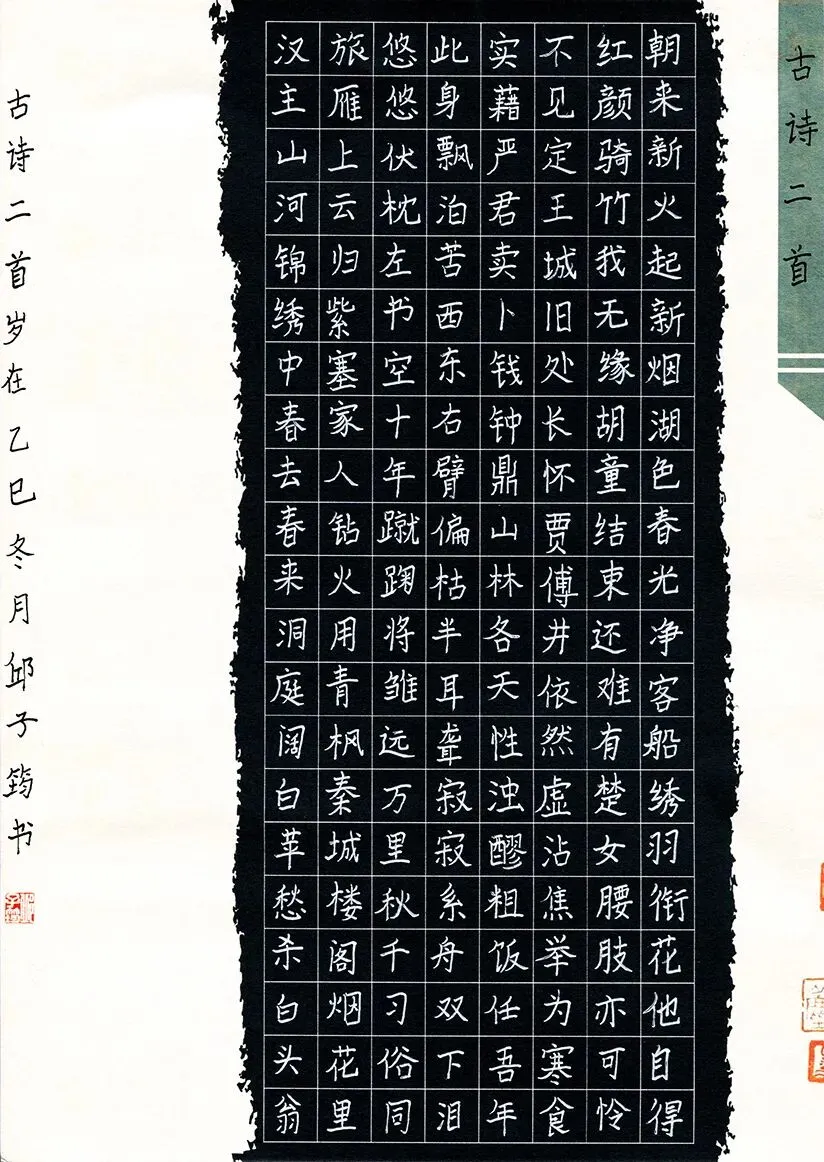 古诗二首
朝来新火起新烟湖色春光净客船绣羽衔花他自得
红颜骑竹我无缘胡童结束还难有楚女腰肢亦可怜
不见定王城旧处长怀贾傅井依然虚沾焦举为寒食
实藉严君卖卜钱钟鼎山林各天性浊醪粗饭任吾年
此身飘泊苦西东右臂偏枯半耳聋寂寂系舟双下泪
悠悠伏枕左书空十年蹴踘将雏远万里秋千习俗同
旅雁上云归紫塞家人钻火用青枫秦城楼阁烟花里
汉主山河锦绣中春去春来洞庭阔白苹愁杀白头翁
古诗二首岁在乙巳冬月邱子筠书